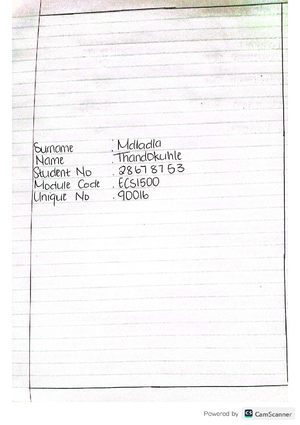 Surname : Mdladla
Name : Thandokuhle
Student No : 28678753
Module Code : ECS1500
Unique No : 90016
Powered by CS CamScanner